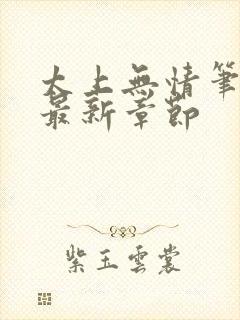 太上無情筆
最新章節
紫玉雲裳